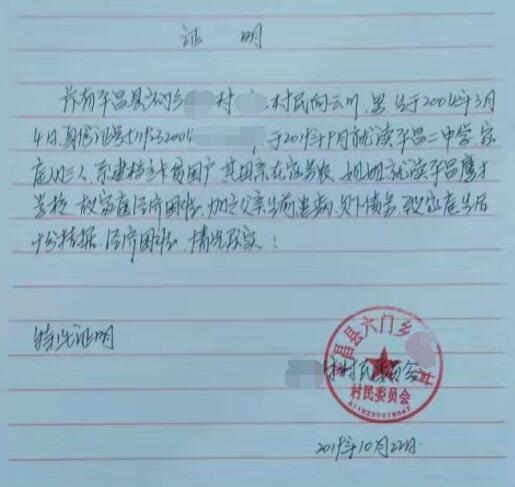 证 明
兹有平昌县六门乡 村 村民向云川,男,生于2004年3月
4日,身份证号5119232004 ,于2019年9月就读平昌二中学,家
庭人口三人,系建档立卡贫困户,其母亲在家务农,姐姐就读平昌
学校,故家庭经济困难,加之父亲生前患病,欠外债务,致家庭生活
十分拮据,经济困难,情况属实!
特此证明
村村民委员会
昌县六门乡 村
村民委员会
2019年10月22日